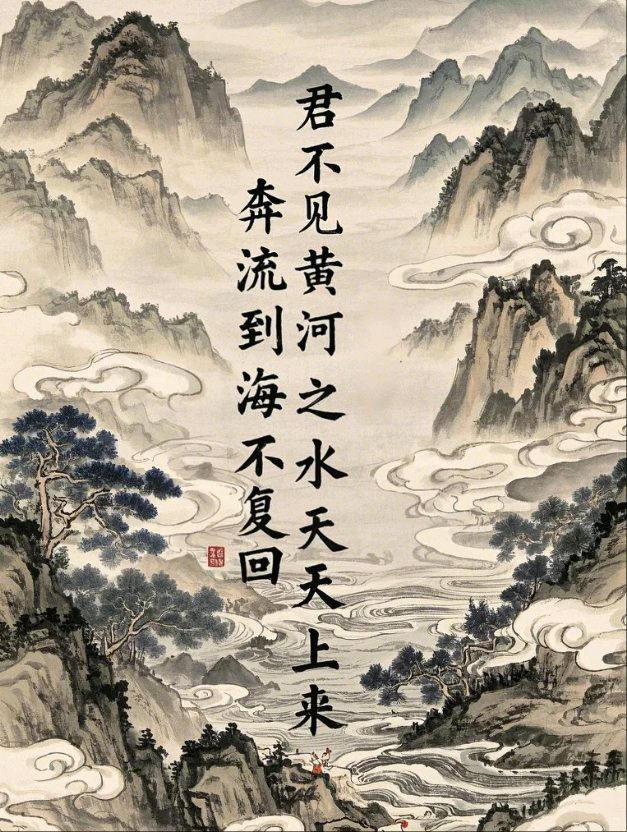 君不见黄河之水天天上来
奔流到海不复回